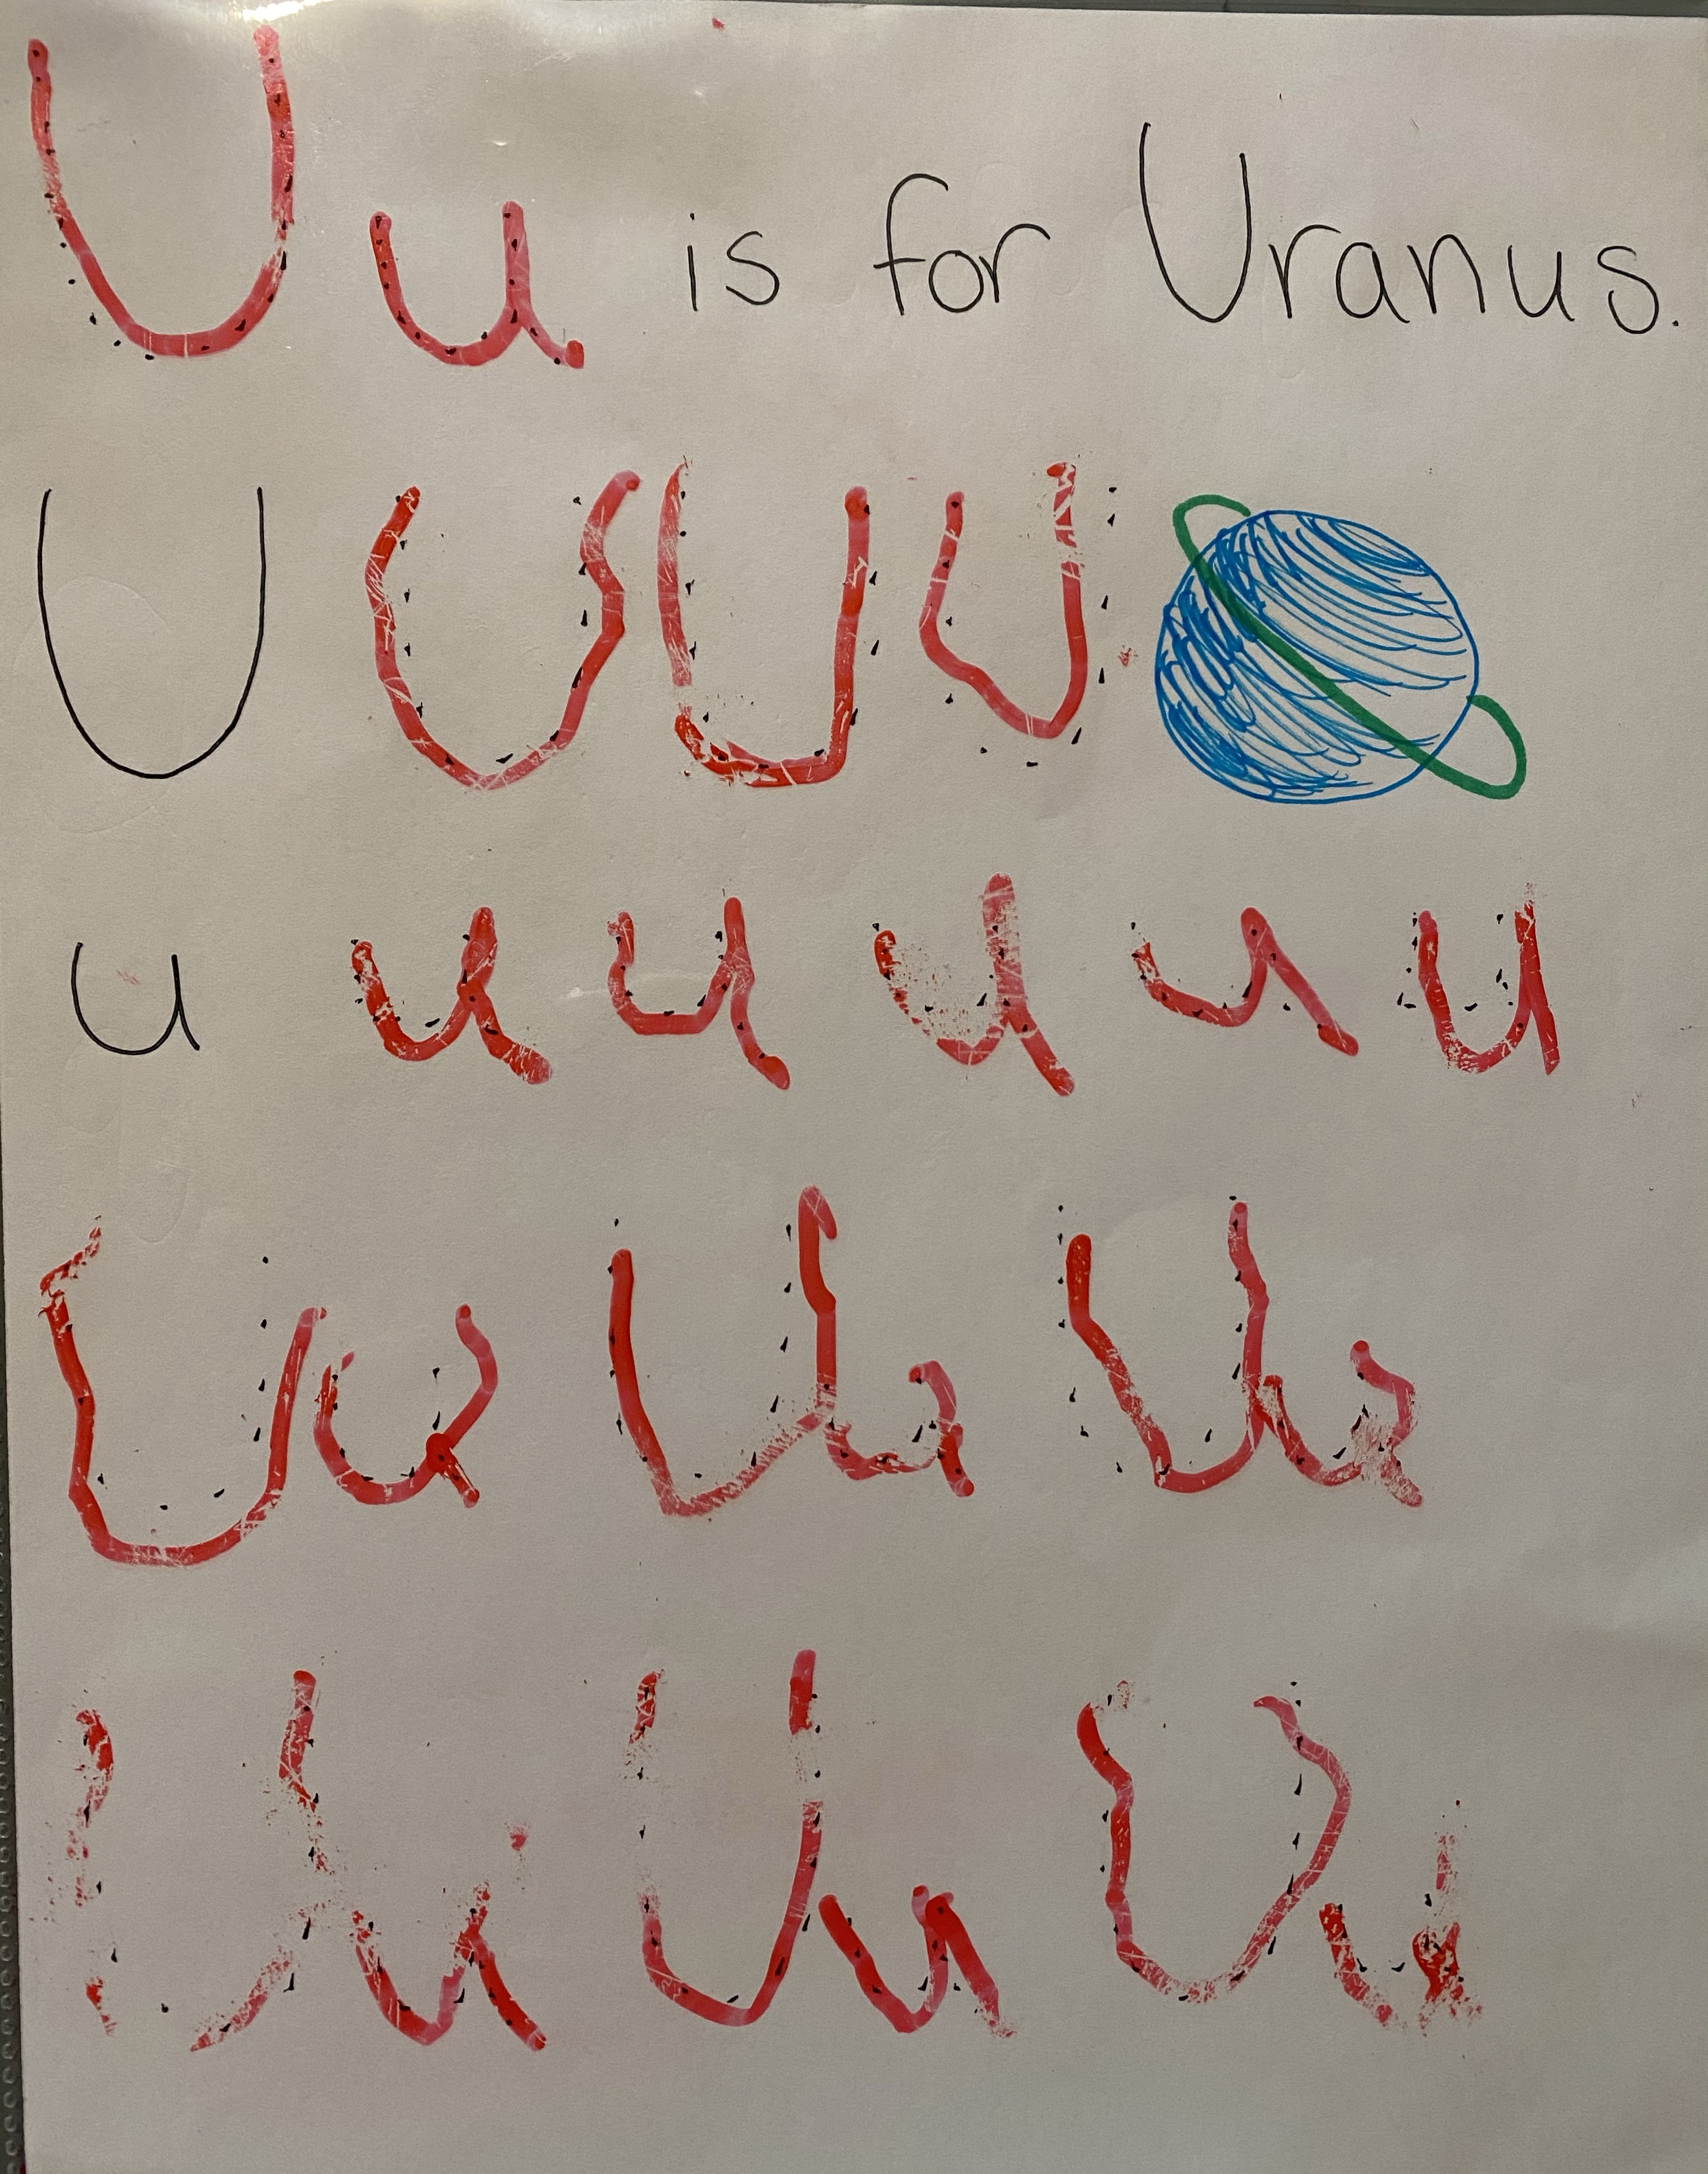 U u is for Uranus.
U U U U
u u u u u u
U u U u U u
U u U u U u